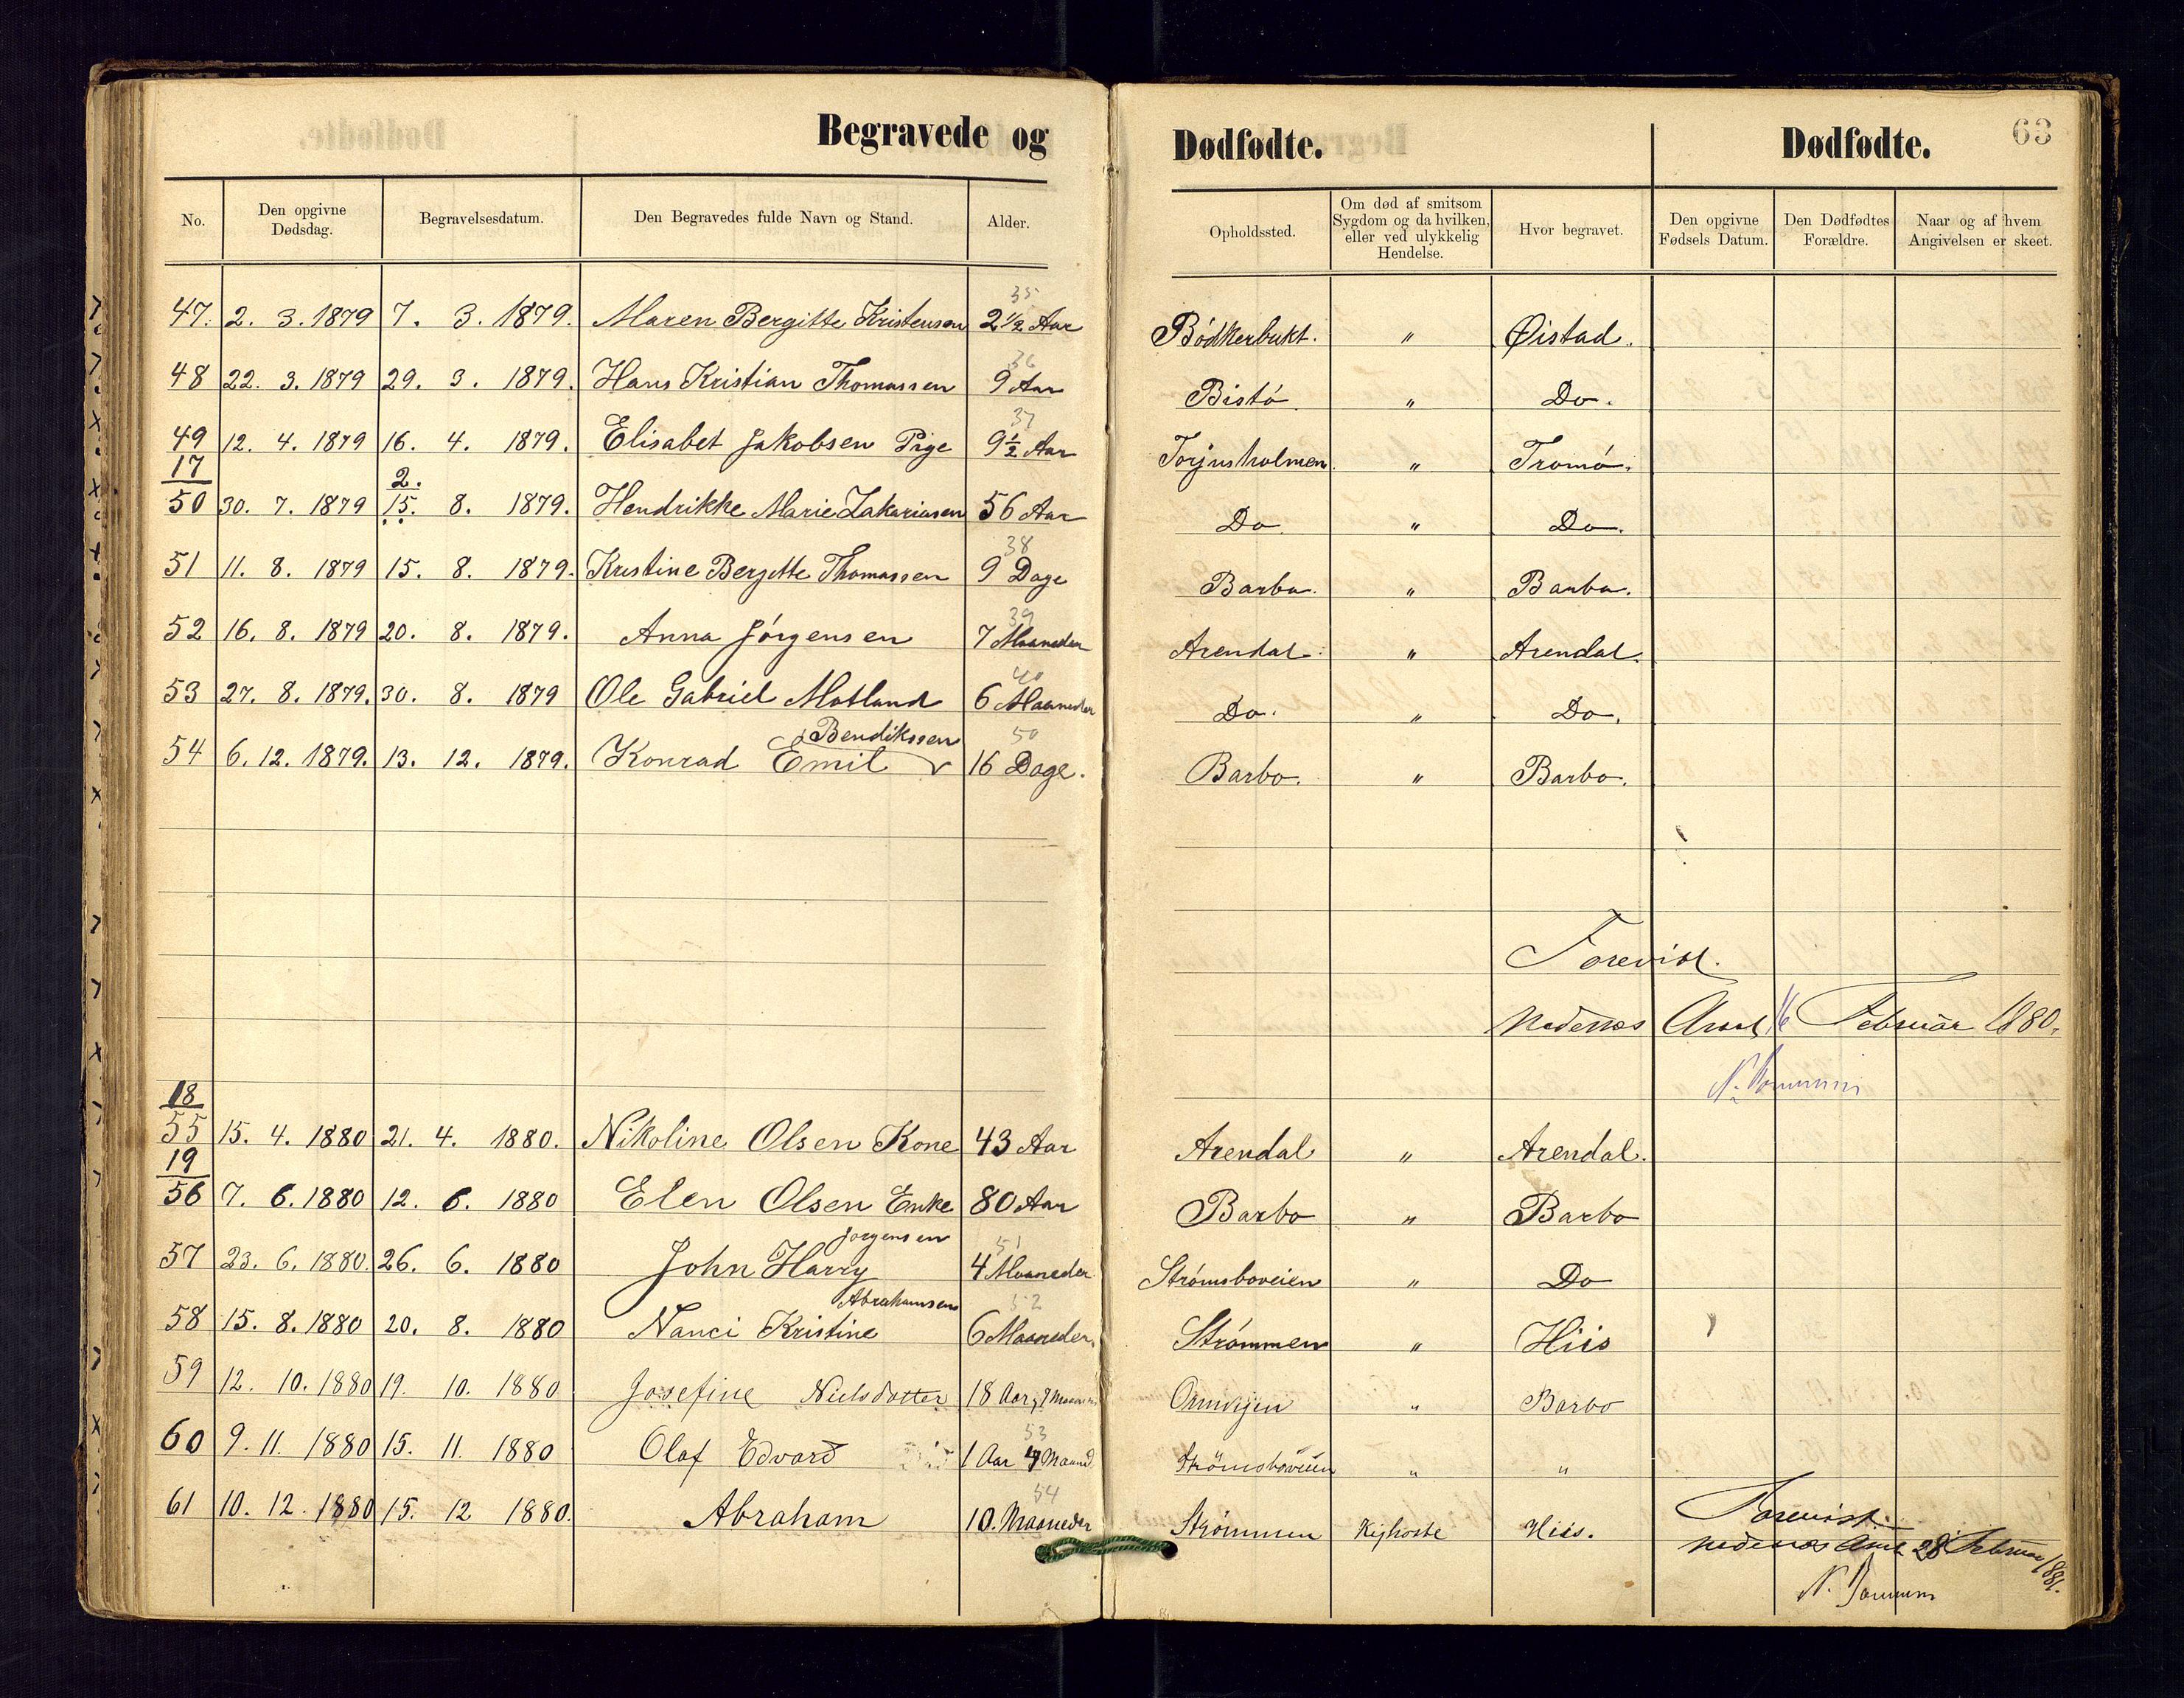 Begravede og Dødfødte. Dødfødte. 63
No. Den opgivne Dødsdag. Begravelsesdatum. Den Begravedes fulde Navn og Stand. Alder. Opholdssted. Om død af smitsom Sygdom og da hvilken, eller ved ulykkelig Hendelse. Hvor begravet. Den opgivne Fødsels Datum. Den Dødfødtes Forældre. Naar og af hvem Angivelsen er skeet.
35
47. 2. 3. 1879 7. 3. 1879. Maren Bergitte Kristensen 2 1/2 Aar Bödkerbukt. " Øistad.
36
48 22. 3. 1879 29. 3. 1879. Hans Kristian Thomassen 9 Aar Bistö " Do.
37
49 12. 4. 1879 16. 4. 1879. Elisabet Jakobsen Pige 9 1/2 Aar Torjusholmen. " Tromö.
17 2.
50 30. 7. 1879 15. 8. 1879. Hendrikke Marie Zakariasen 56 Aar Do " Do.
38
51 11. 8. 1879 15. 8. 1879. Kristine Bergitte Thomassen 9 Dage Barbo. " Barbo.
39
52 16. 8. 1879 20. 8. 1879. Anna Jörgensen 7 Maaneder Arendal. " Arendal.
40
53 27. 8. 1879. 30. 8. 1879 Ole Gabriel Motland 6 Maaneder Do. " Do.
Bendikssen 50
54 6. 12. 1879. 13. 12. 1879. Konrad Emil 16 Dage. Barbo. " Barbo.
Forevist.
Nedenes Amt 16 Februar 1880.
18
55 15. 4. 1880 21. 4. 1880. Nikoline Olsen Kone 43 Aar Arendal " Arendal.
19
56 7. 6. 1880 12. 6. 1880 Elen Olsen Enke 80 Aar Barbo " Barbo
Jorgensen 51
57 23. 6. 1880. 26. 6. 1880 John Harry 4 Maaneder Strömsboveien " Do
Abrahamsen 52
58 15. 8. 1880 20. 8. 1880 Nanci Kristine 6 Maaneder. Strömmen " Hiis
59 12. 10. 1880 19. 10. 1880 Josefine Nielsdotter 18 Aar, 7 " Barbo
53
60 9. 11. 1880 15. 11. 1880 Olaf Edvard 1 Aar 4 Maaned Strömsboveien " "
54
61 10. 12. 1880 15. 12 1880. Abraham 10. Maaneder Strömmen Kighoste Hiis.
Forevist.
Nedenes Amt 28 Februar 1881.